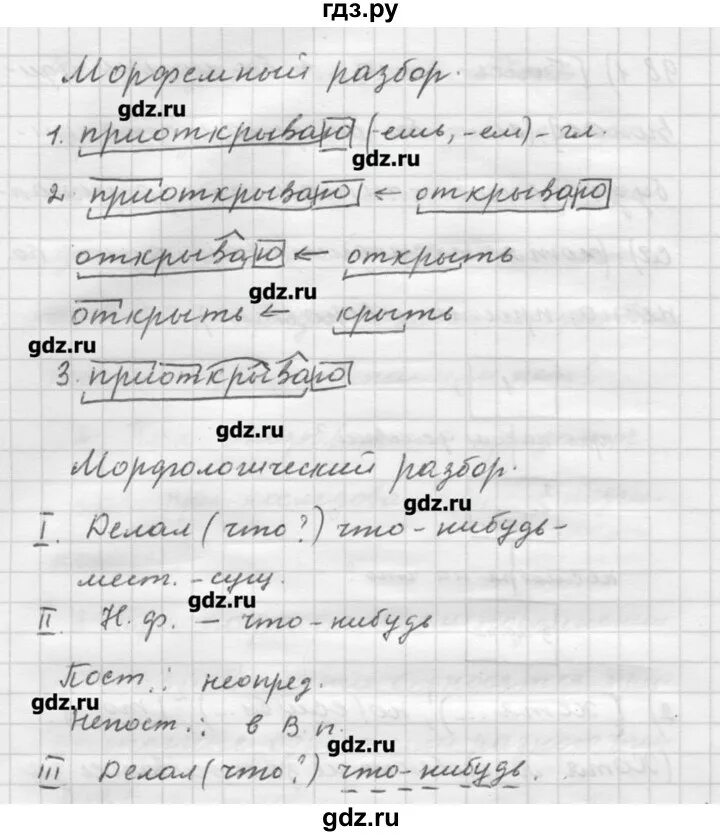 гдз.ру
Морфемный разбор.
gdz.ru
1. приоткрываю (-ешь, -ем) - гл.
gdz.ru
2. приоткрываю ← открываю
открываю ← открыть
gdz.ru
открыть ← крыть
gdz.ru
3. приоткрываю
gdz.ru
Морфологический разбор.
gdz.ru
I. Делал (что?) что-нибудь -
мест. - сущ.
gdz.ru
II. Н. ф. - что-нибудь
Пост.: неопред.
gdz.ru
Непост.: в В. п.
gdz.ru
III Делал (что?) что-нибудь.
gdz.ru